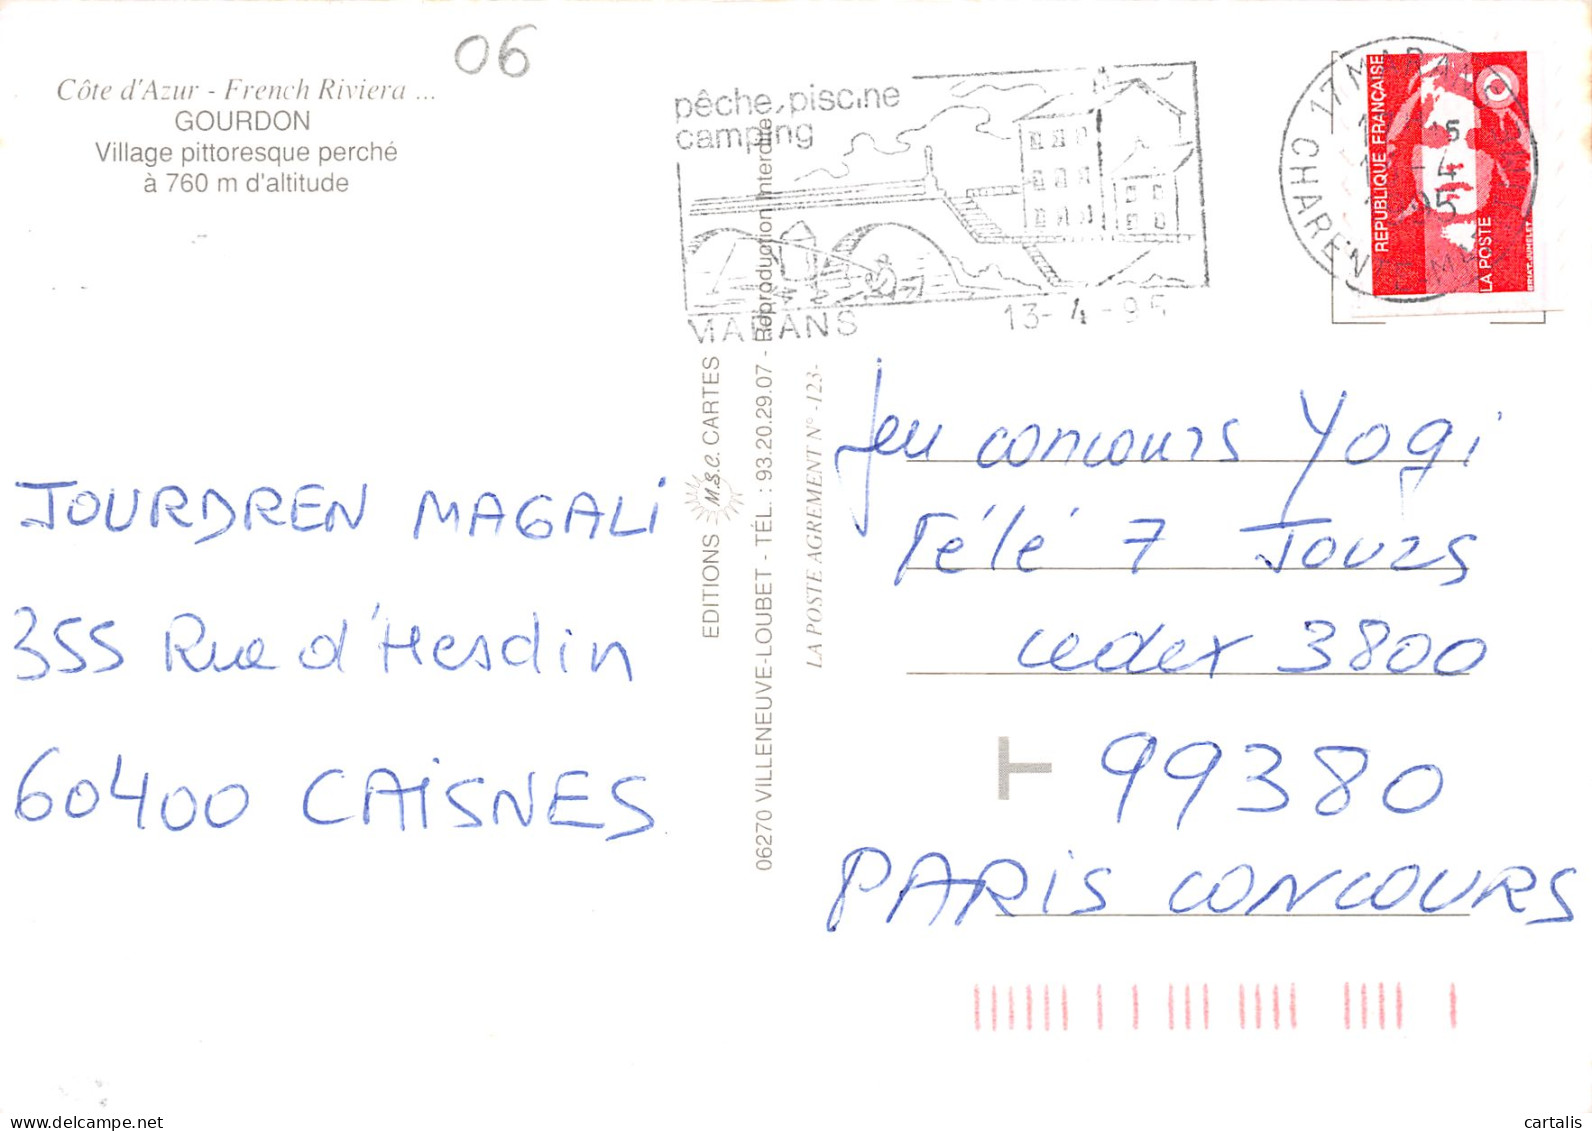 06
Côte d'Azur - French Riviera ...
GOURDON
Village pittoresque perché
à 760 m d'altitude
pêche, piscine
camping
MARANS
13-4-95
17 MARANS
CHARENTE-MME
RÉPUBLIQUE FRANÇAISE
LA POSTE
BRIAT-JUMELET
EDITIONS M.S.C. CARTES
06270 VILLENEUVE-LOUBET - TÉL. : 93.20.29.07 - Reproduction interdite
LA POSTE AGREMENT N° -123-
JOURDREN MAGALI
355 Rue d'Hesdin
60400 CAISNES
Jeu concours Yogi
Télé 7 Jours
cedex 3800
99380
PARIS CONCOURS
cartalis
www.delcampe.net